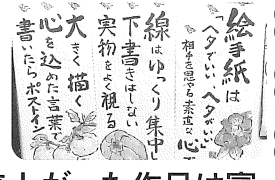 絵手紙は
「ヘタでいい、ヘタがいい」
相手を思やる素直な心で
線はゆっくり集中し
下書きはしない
実物をよく視る
大きく描く
心を込めた言葉で
書いたらポストイン